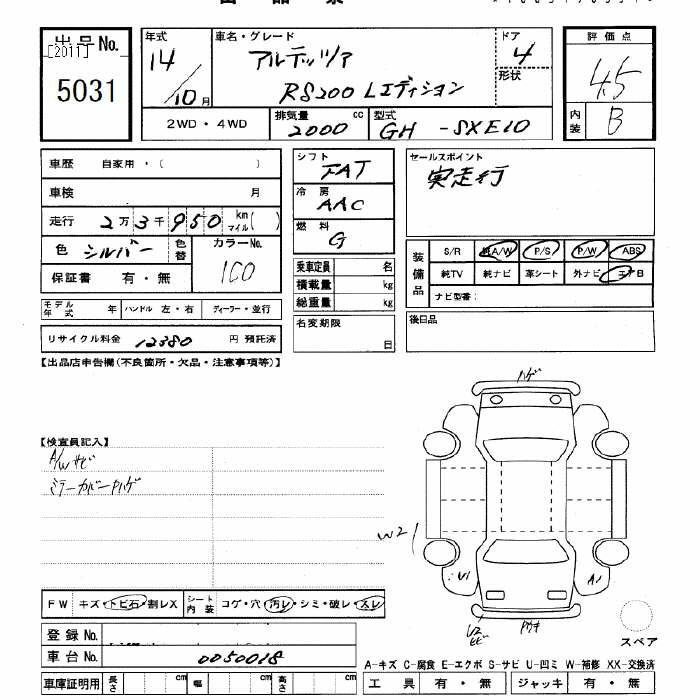 出品No.
[2011]
5031
年式
14
/10月
車名・グレード
アルテッツァ
RS200 Lエディション
ドア
4
形状
評価点
4.5
内装
B
2WD・4WD
排気量 cc
2000
型式
GH -SXE10
車歴 自家用・( )
車検 月
走行 2万3千950 km マイル( )
色 シルバー 色替
カラーNo.
100
保証書 有・無
モデル年式 年 ハンドル 左・右 ディーラー・並行
リサイクル料金 12380 円 預託済
シフト
FAT
冷房
AAC
燃料
G
乗車定員 名
積載量 kg
総重量 kg
名変期限
日
セールスポイント
実走行
装備品
S/R 純A/W P/S P/W ABS
純TV 純ナビ 革シート 外ナビ エアB
ナビ型番:
後日品
【出品店申告欄(不良箇所・欠品・注意事項等)】
【検査員記入】
A/Wサビ
ミラーカバーハゲ
ハゲ
W2
U1
A1
U2
FW キズ・トビ石・割レX シート内装 コゲ・穴・汚レ・シミ・破レ・スレ
登録No.
車台No. 0050018
車庫証明用 長さ cm 幅 cm 高さ cm
スペア
A-キズ C-腐食 E-エクボ S-サビ U-凹ミ W-補修 XX-交換済
工具 有・無 ジャッキ 有・無